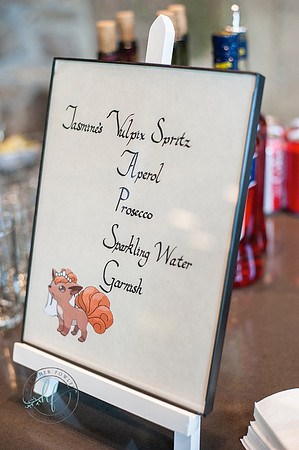 Jasmine's Vulpix Spritz
Aperol
Prosecco
Sparkling Water
Garnish